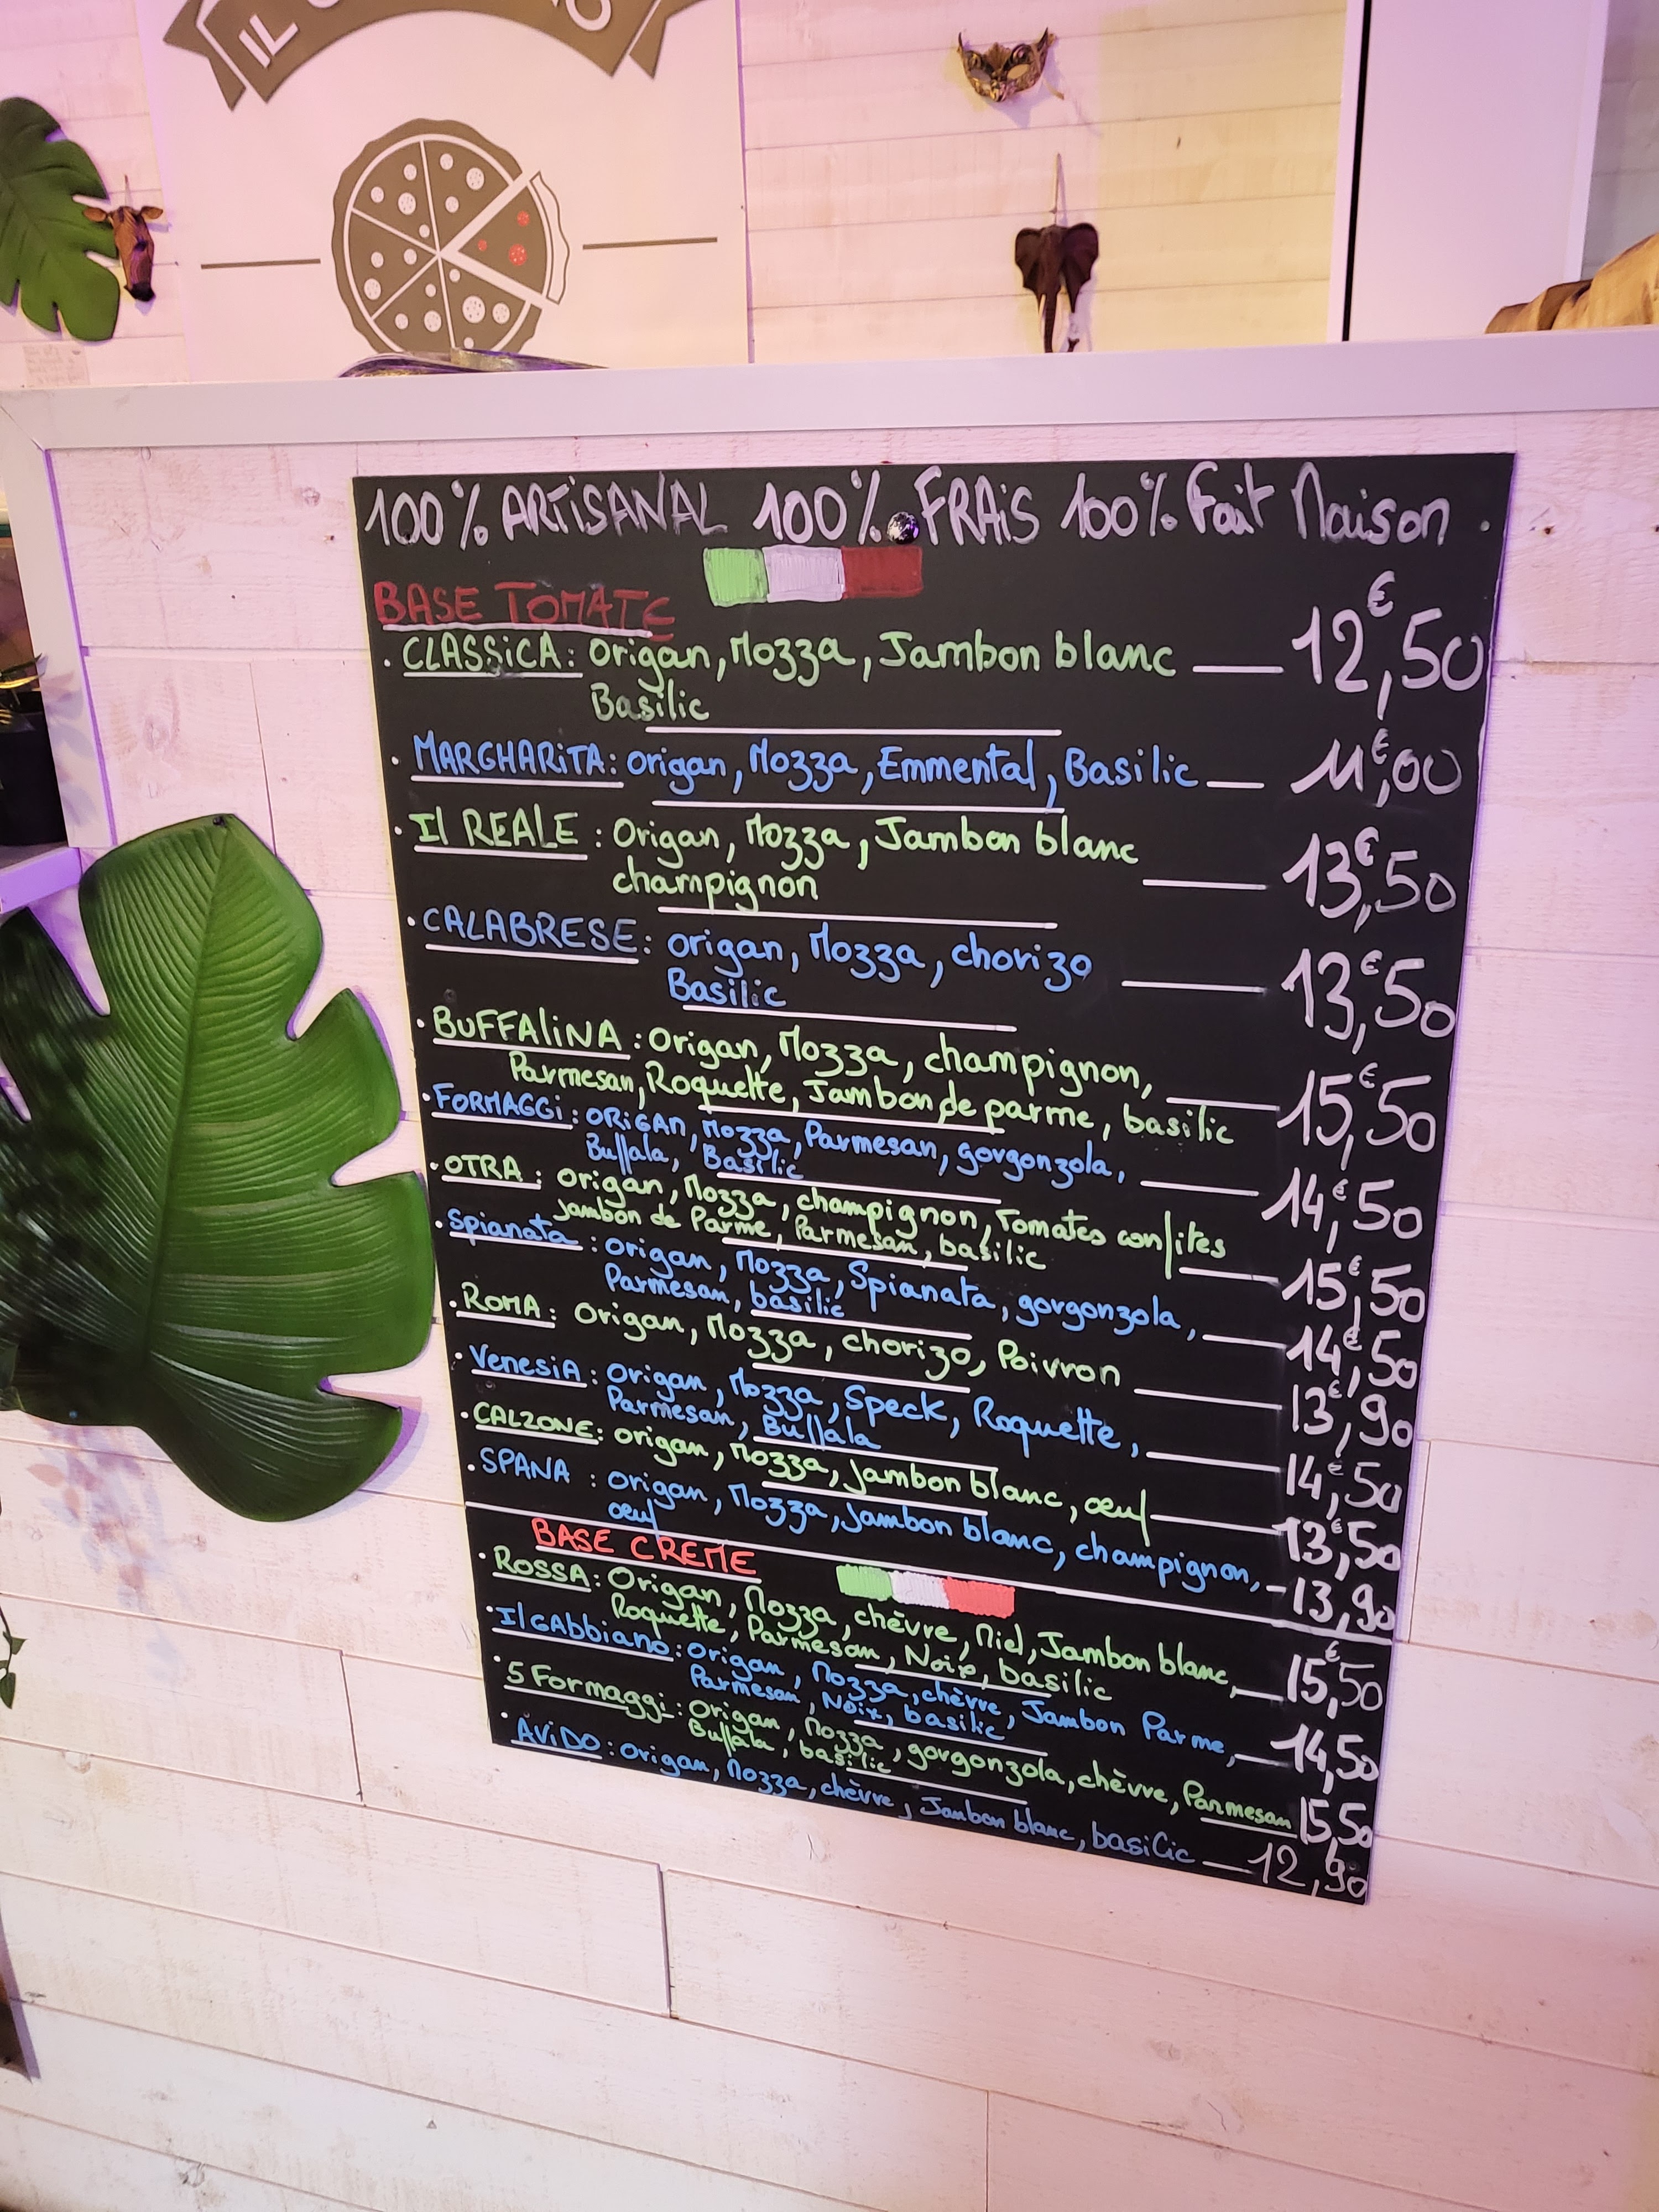 IL
100% ARTISANAL 100% FRAIS 100% Fait Maison
BASE TOMATE
. CLASSICA : Origan, Mozza, Jambon blanc — 12€,50
Basilic
. MARGHARITA : origan, Mozza, Emmental, Basilic — 11€,00
. Il REALE : Origan, Mozza, Jambon blanc
champignon — 13€,50
. CALABRESE : origan, Mozza, chorizo
Basilic — 13€,50
. BUFFALINA : Origan, Mozza, champignon,
Parmesan, Roquette, Jambon de parme, basilic — 15€,50
. FORMAGGI : ORIGAN, Mozza, Parmesan, gorgonzola,
Buffala, Basilic — 14€,50
. OTRA : origan, Mozza, champignon, Tomates confites
Jambon de Parme, Parmesan, basilic — 15€,50
. Spianata : origan, Mozza, Spianata, gorgonzola,
Parmesan, basilic — 14€,50
. ROMA : Origan, Mozza, chorizo, Poivron — 13€,90
. VenesiA : Origan, Mozza, Speck, Roquette,
Parmesan, Buffala — 14€,50
. CALZONE : origan, Mozza, jambon blanc, œuf — 13€,50
. SPANA : origan, Mozza, Jambon blanc, champignon, - 13,90
œuf
BASE CREME
. ROSSA : Origan, Mozza, chèvre, Miel, Jambon blanc,
Roquette, Parmesan, Noix, basilic — 15€,50
. Il GAbbiano : origan, Mozza, chèvre, Jambon Parme,
Parmesan, Noix, basilic — 14,50
. 5 Formaggi : Origan, Mozza, gorgonzola, chèvre, Parmesan 15,50
Buffala, basilic
. AViDO : origan, Mozza, chèvre, Jambon blanc, basilic — 12,90